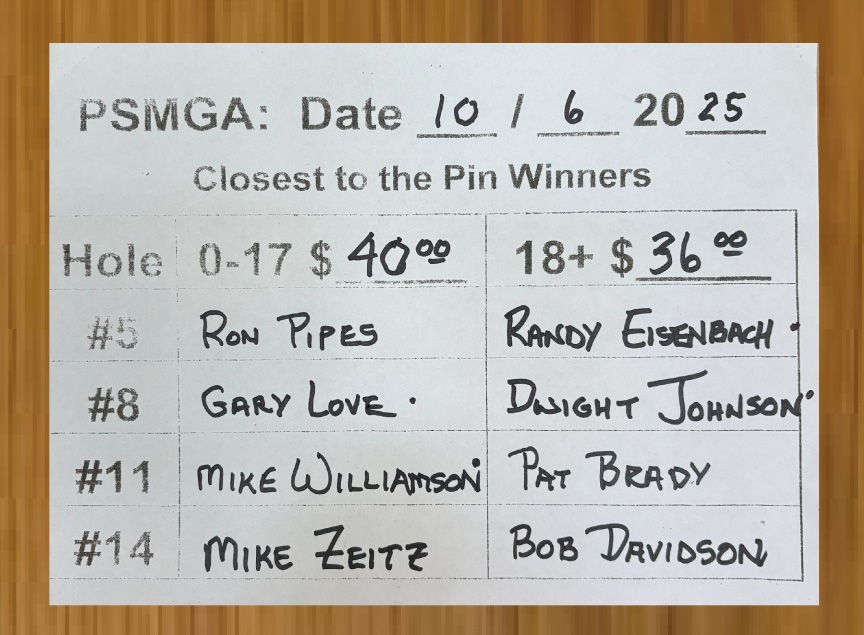 PSMGA: Date 10 / 6 2025
Closest to the Pin Winners
Hole 0-17 $ 40 00 18+ $ 36 00
#5 RON PIPES RANDY EISENBACH
#8 GARY LOVE DWIGHT JOHNSON
#11 MIKE WILLIAMSON PAT BRADY
#14 MIKE ZEITZ BOB DAVIDSON